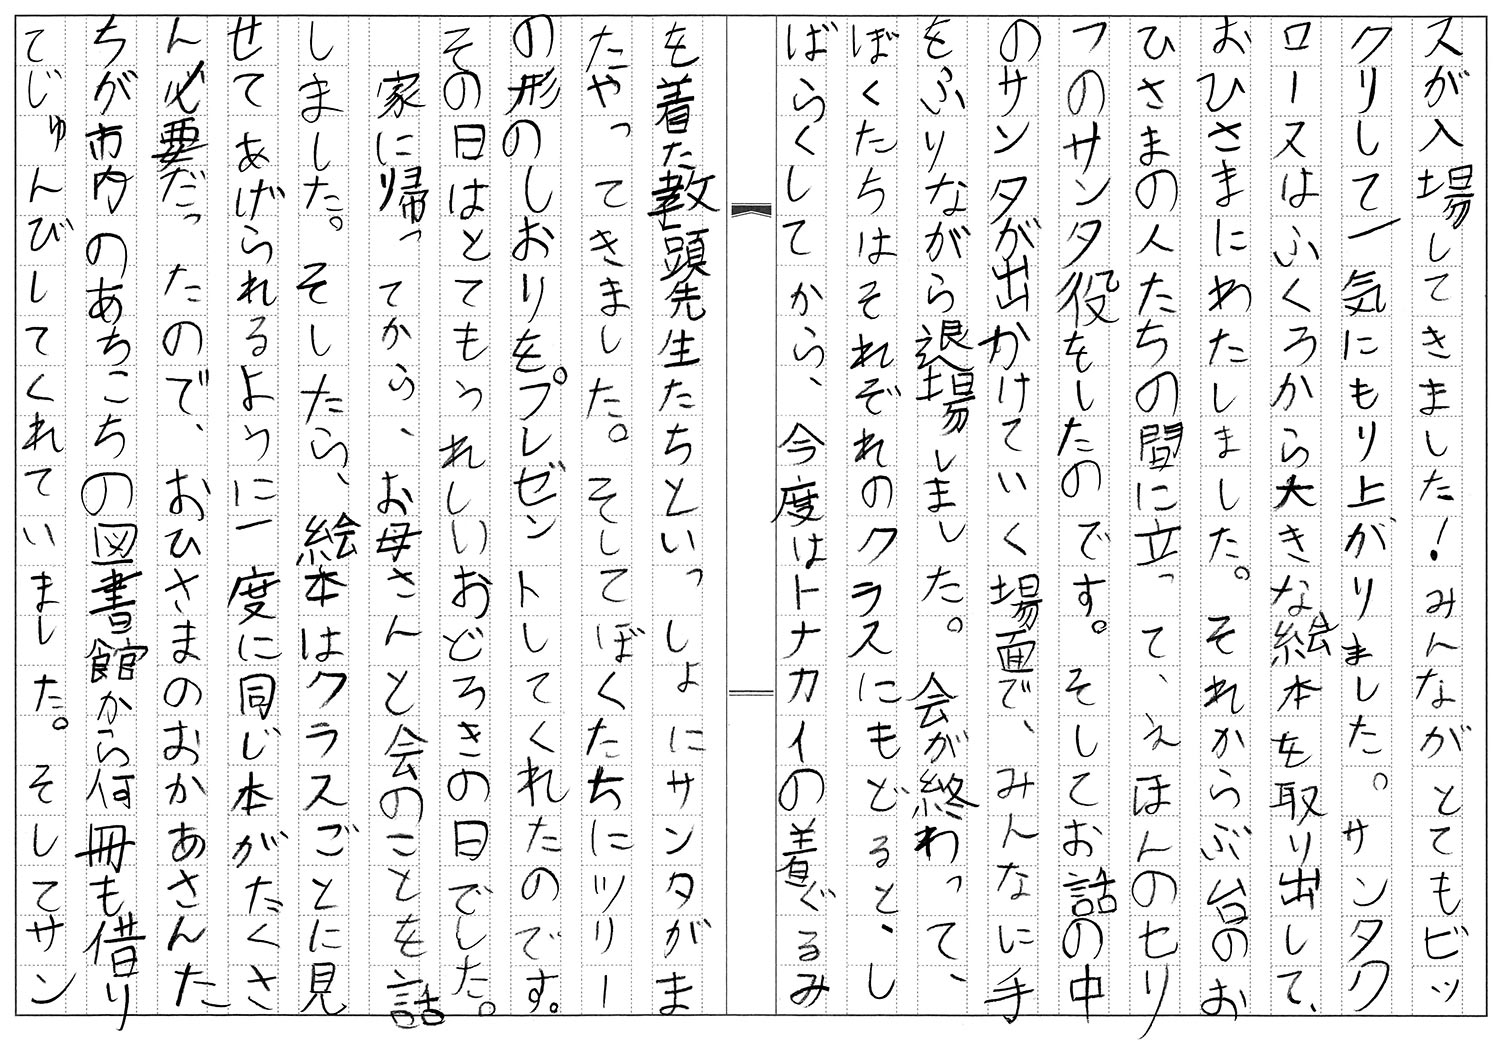 スが入場してきました！みんながとてもビッ
クリして一気にもり上がりました。サンタク
ロースはふくろから大きな絵本を取り出して、
おひさまにわたしました。それからぶ台のお
ひさまの人たちの間に立って、えほんのセリ
フのサンタ役をしたのです。そしてお話の中
のサンタが出かけていく場面で、みんなに手
をふりながら退場しました。会が終わって、
ぼくたちはそれぞれのクラスにもどると、し
ばらくしてから、今度はトナカイの着ぐるみ
を着た教頭先生たちといっしょにサンタがま
たやってきました。そしてぼくたちにツリー
の形のしおりをプレゼントしてくれたのです。
その日はとてもうれしいおどろきの日でした。
家に帰ってから、お母さんと会のことを話
しました。そしたら、絵本はクラスごとに見
せてあげられるように一度に同じ本がたくさ
ん必要だったので、おひさまのおかあさんた
ちが市内のあちこちの図書館から何冊も借り
てじゅんびしてくれていました。そしてサン